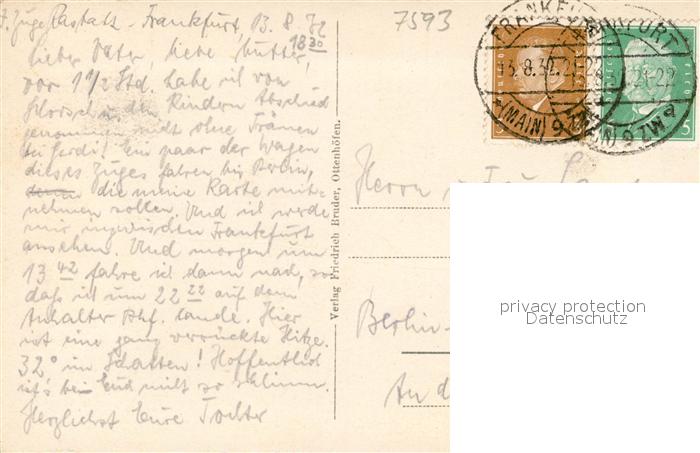 Zuge Rastatt - Frankfurt, 13.8.32
18 30
7593
Lieber Vater, liebe Mutter,
vor 1 1/2 Std. habe ich von
den Kindern Abschied
genommen nicht ohne Tränen
bei Gerdi! Ein paar der Wagen
dieses Zuges fahren bis Berlin,
die meine Karte mit-
nehmen sollen. Und ich werde
mir inzwischen Frankfurt
ansehen. Und morgen um
13 42 fahre ich dann nach, so
daß ich um 22 22 auf dem
Anhalter Bhf. lande. Hier
ist eine ganz verrückte Hitze.
32° im Schatten! Hoffentlich
ist's bei Euch nicht so schlimm.
Herzlichst Eure Tochter
Verlag Friedrich Bruder, Ottenhöfen.
FRANKFURT
(MAIN) 9
Herrn
Berlin-
An d
privacy protection
Datenschutz